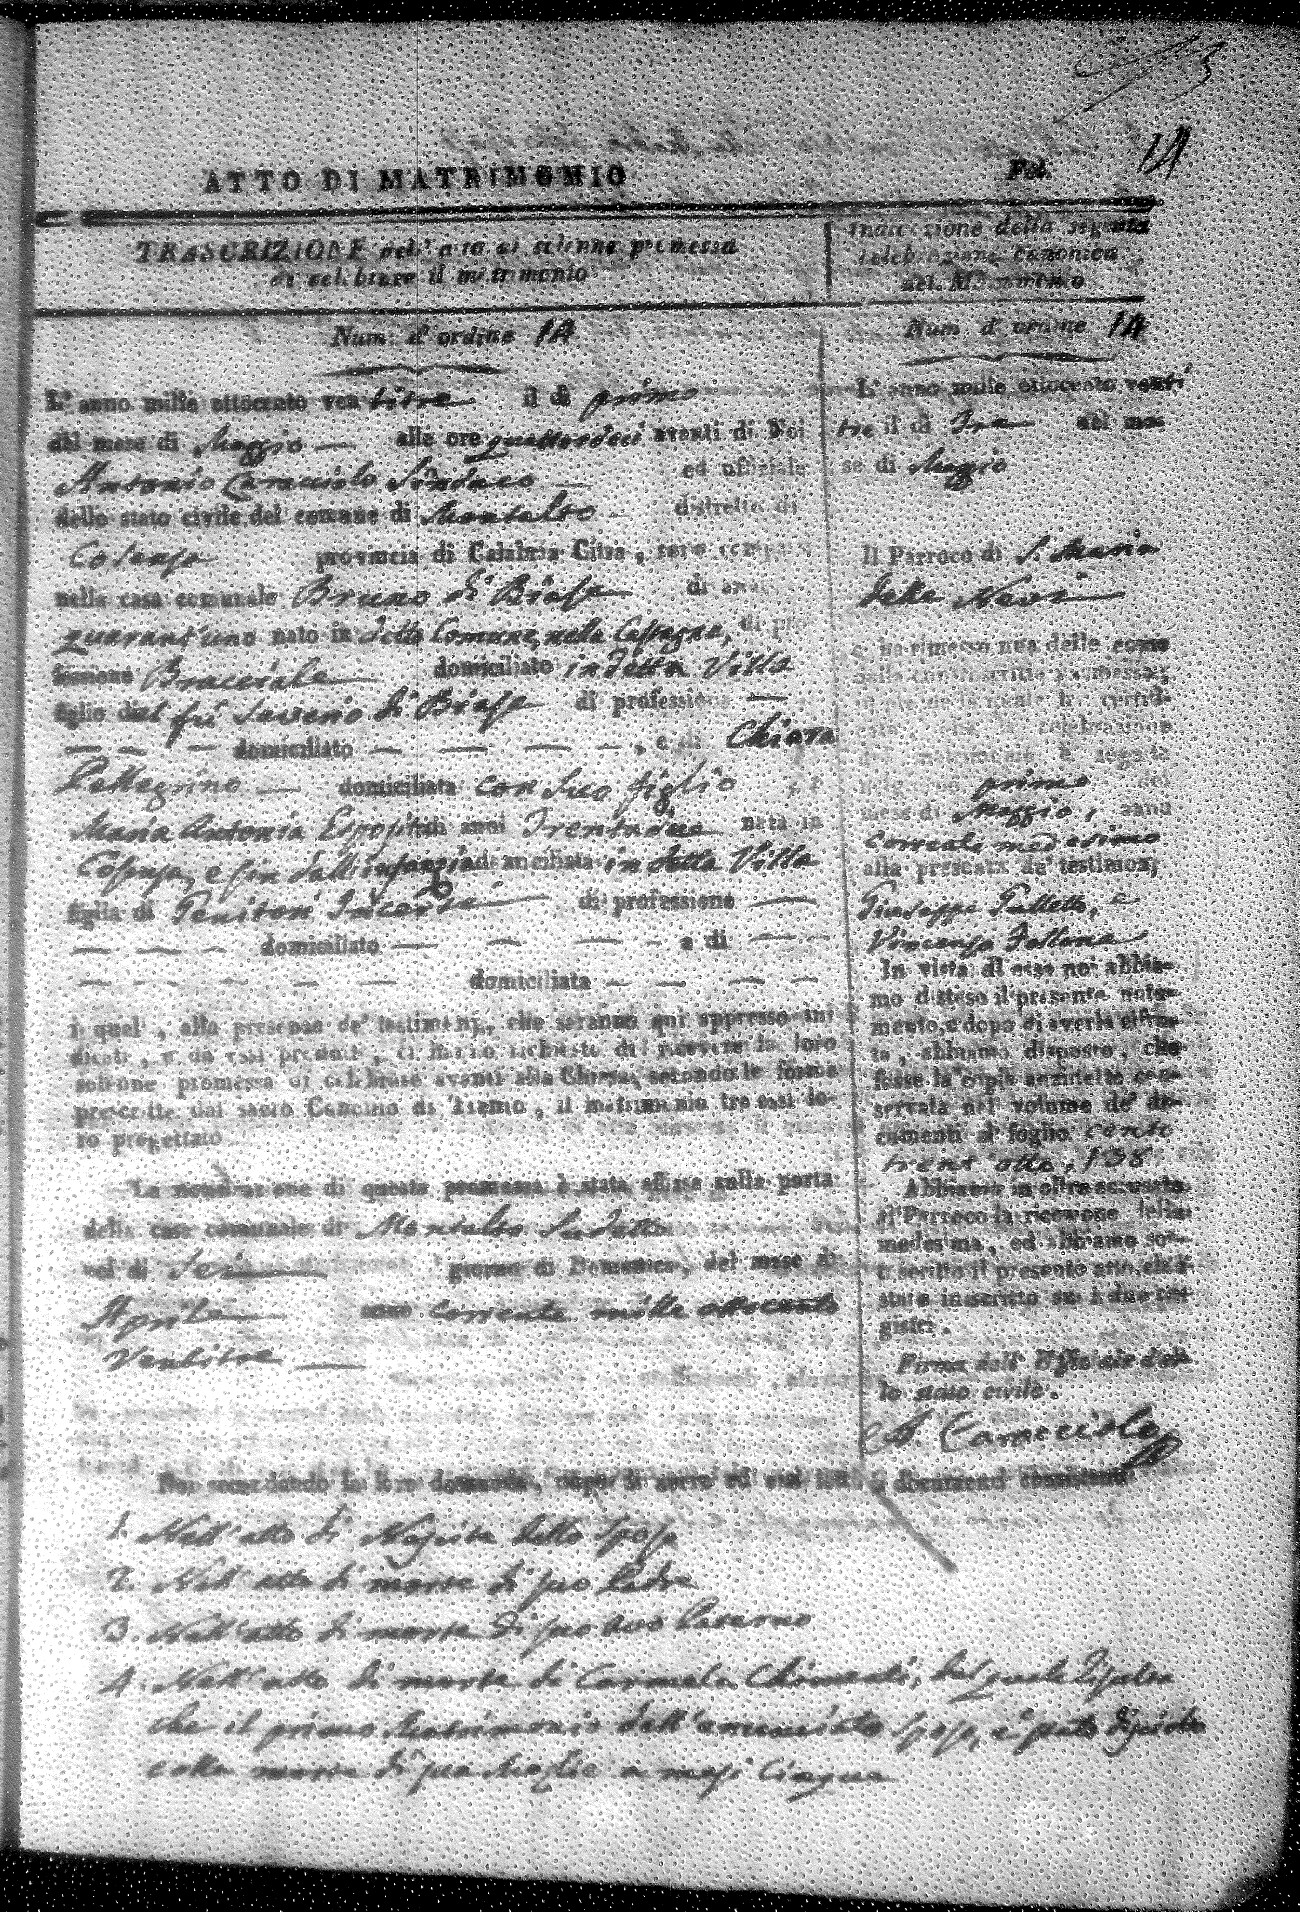 14
ATTO DI MATRIMONIO Fol.
TRASCRIZIONE dell' atto di solenne promessa
di celebrare il matrimonio
Num. d' ordine 14
L' anno mille ottocento ventitre il dì primo
del mese di Maggio — alle ore quattordeci avanti di Noi
Antonio Caracciolo Sindaco — ed uffiziale
dello stato civile del comune di Montalto — distretto di
Cosenza provincia di Calabria Citra, sono comparsi
nella casa comunale Bruno di Biase di anni
quarant'uno nato in detto Comune, nella Campagna, di pro-
fessione Bracciale domiciliato in detta Villa
figlio del fù Saverio di Biase di professione —
— — — domiciliato — — — —, e di Chiara
Pellegrino — domiciliata con suo figlio, e
Maria Antonia Esposito di anni Trentadue nata in
Cosenza, e fin dall'infanzia domiciliata in detta Villa
figlia di Genitori Incerti — di professione —
— — — domiciliato — — — — e di — —
— — — — — domiciliata — — — —
i quali, alla presenza de' testimonj, che saranno qui appresso indi
dicati, e da essi prodotti, ci hanno richiesto di ricevere la loro
solenne promessa di celebrare avanti alla Chiesa, secondo le forme
prescritte dal sacro Concilio di Trento, il matrimonio tra essi lo-
ro progettato
La notificazione di questa promessa è stata affissa sulla porta
della casa comunale di Montalto Sudetto
nel dì Sei — giorno di Domenica, del mese di
Aprile — anno corrente mille ottocento
Ventitre —
Noi secondando la loro domanda, dopo di aver ad essi letti i documenti consistenti
1. Nell'atto di Nascita dello Sposo
2. Nell'atto di morte di suo Padre
3. Nell'atto di morte di suo Avo Paterno
4. Nell'atto di morte di Carmela Chimenti, dal quale risulta
che il primo Matrimonio dell'anunciato Sposo, è stato disciolto
colla morte di sua Moglie a mesi Cinque
Indicazione della seguita
celebrazione canonica
del Matrimonio
Num d' ordine 14
L' anno mille ottocento venti
tre il dì Tre del me-
se di Maggio
Il Parroco di S. Maria
della Neve
ci ha rimesso una delle copie
della controscritta promessa;
in piè della quale ha certifi-
cato, che la celebrazione
del matrimonio è seguita
nel giorno primo del
mese di Maggio, anno
corrente medesimo
alla presenza de' testimonj
Giuseppe Palletta, e
Vincenzo Fallona
In vista di essa noi abbia-
mo disteso il presente nota-
mento, e dopo di averla cifra-
ta, abbiamo disposto, che
fosse la copia anzidetta con-
servata nel volume de' do-
cumenti al foglio cento
trent'otto, 138
Abbiamo in oltre accusato
al Parroco la ricezione della
medesima, ed abbiamo sot-
toscritto il presente atto, ch'è
stato inscritto su i due re-
gistri.
Firma dell' Uffiziale del-
lo stato civile.
A. Caracciolo